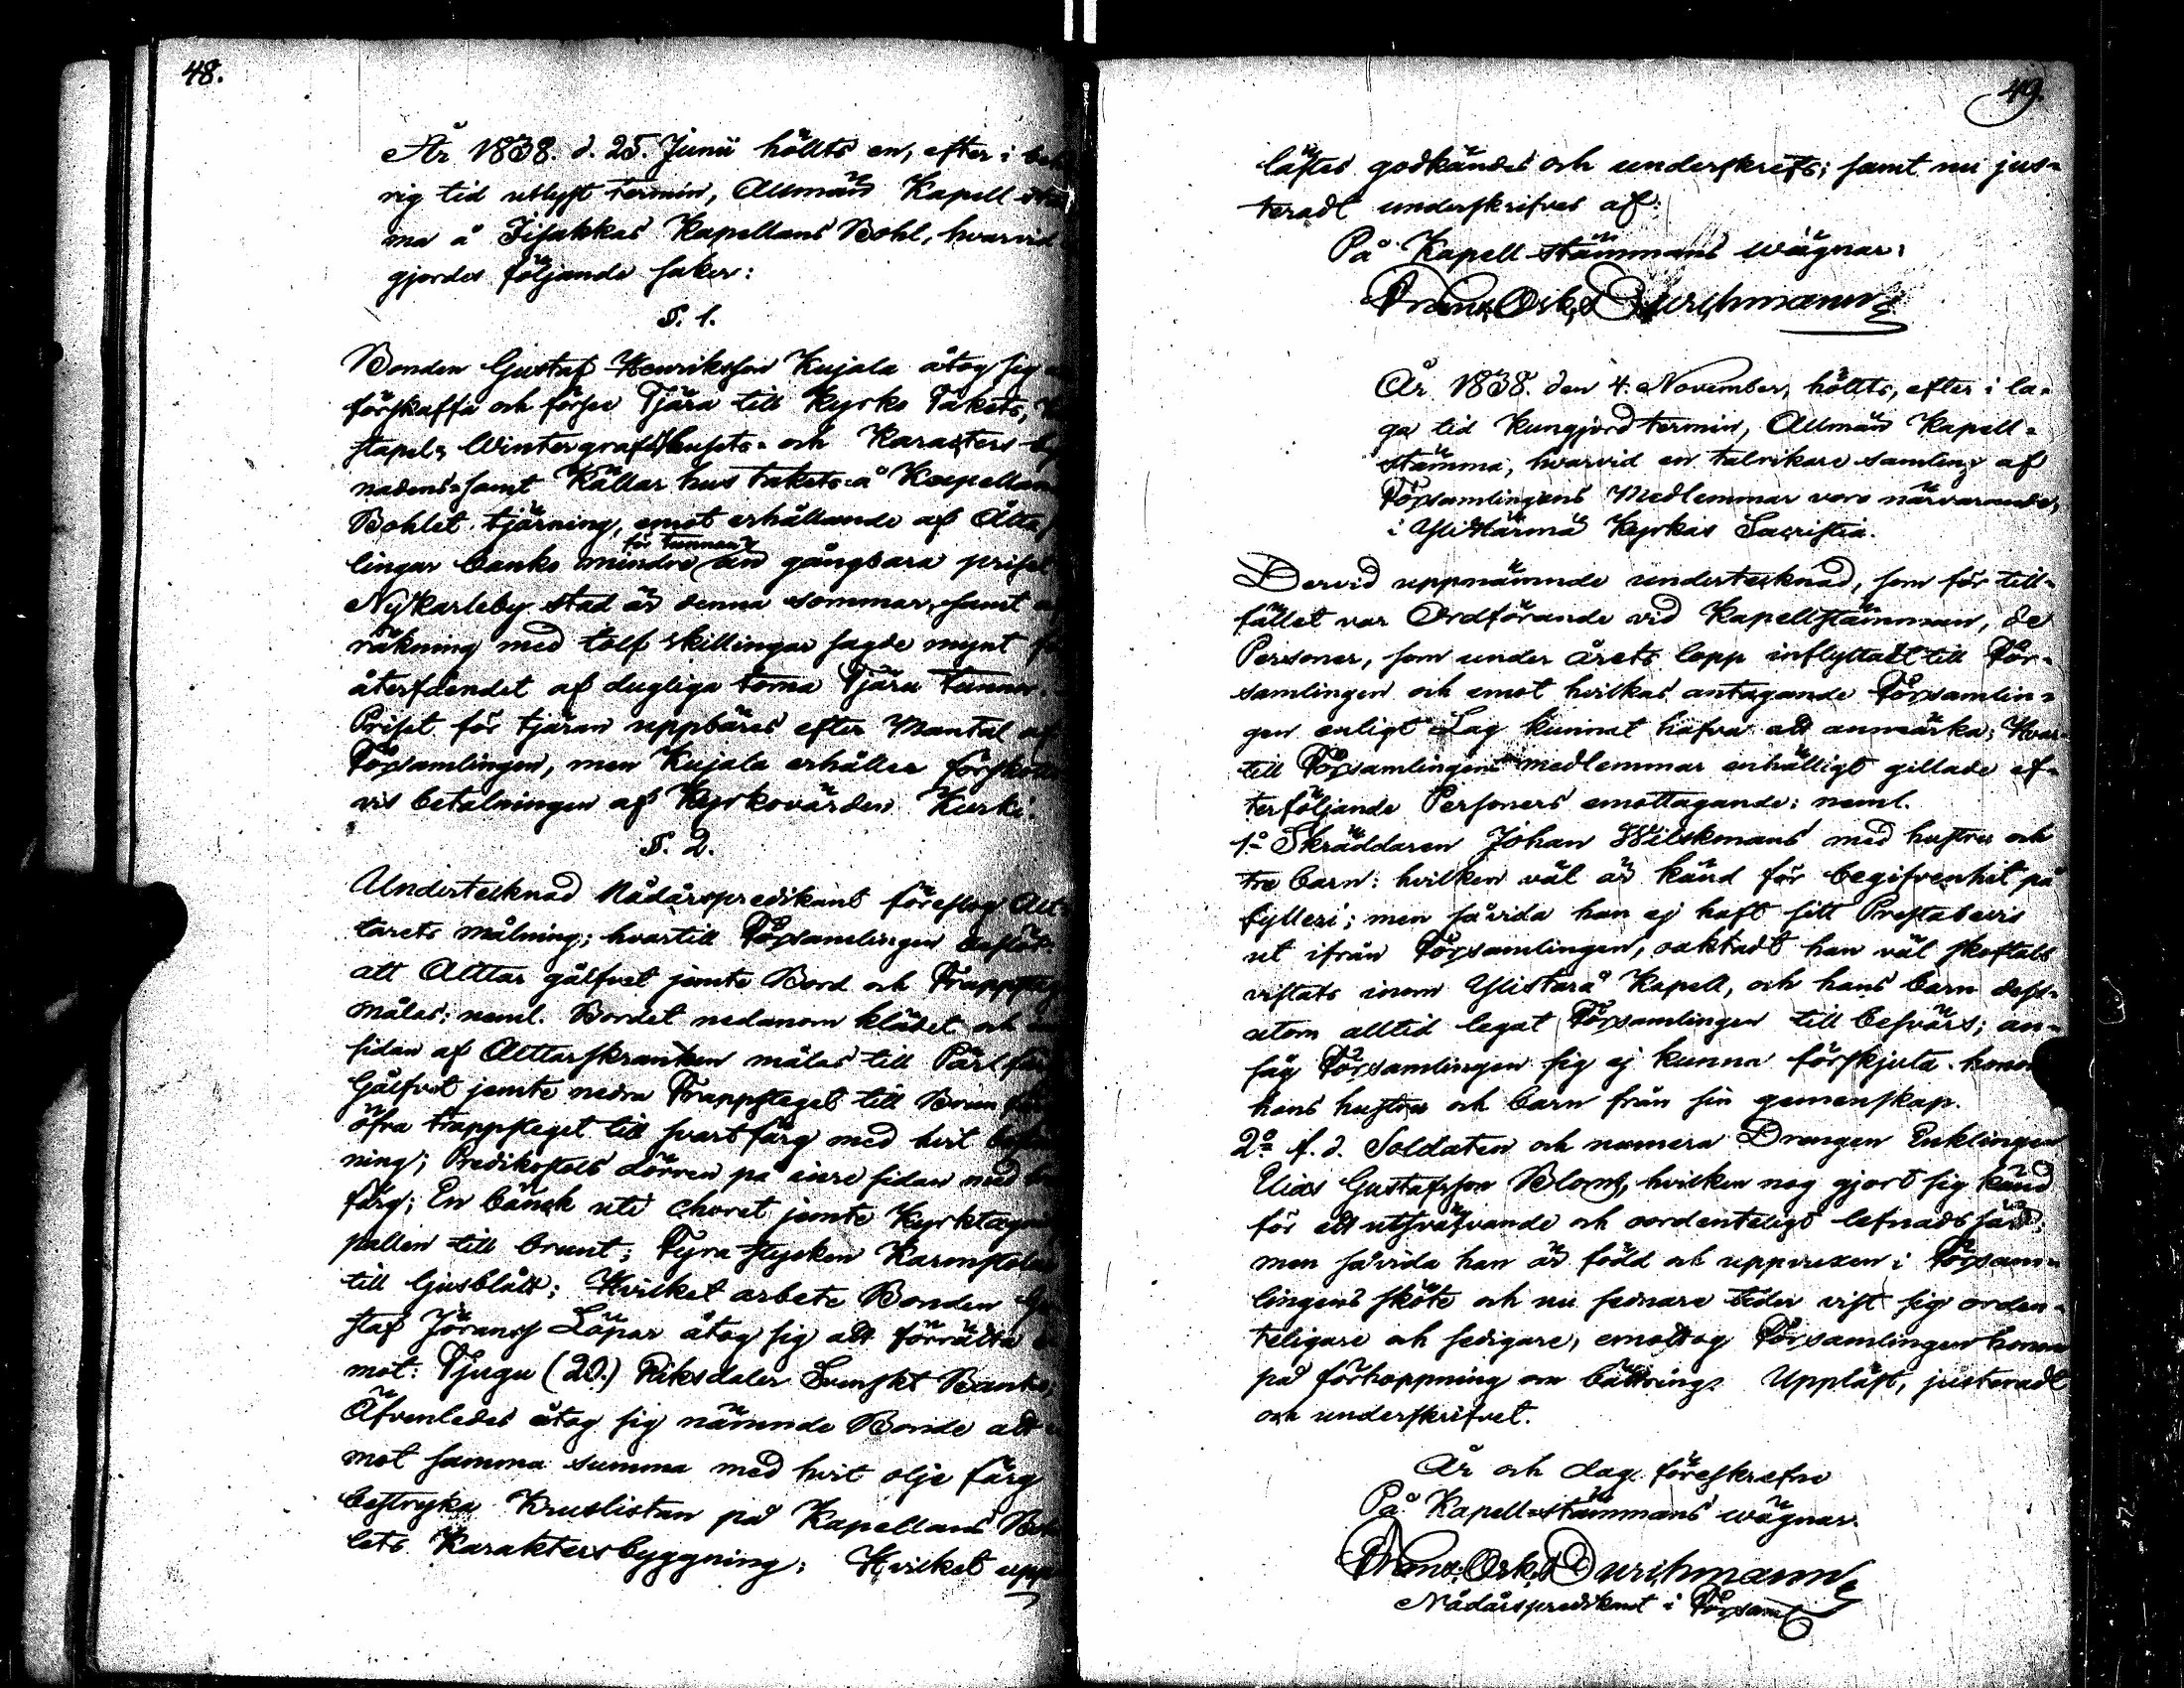 48.
År 1838. d. 25. Junii höllts en, efter i beh
rig tid utlyst termin, Allmän Kapell stä
ma å Kapellans Bohl, hvarvid
gjordes följande saker:
§. 1.
Bonden Gustaf Henriksson Kujala åtog sig
förskaffa och förse Tjära till Kyrko Takets,
stapel, Wintergrafshusets- och Karacters
nadens- samt Källar hus takets å Kapellans
Bohlet tjärning, emot erhållande af Åtta
för tunnan
lingar banko mindre än gångbara priset
Nykarleby stad är denna sommar, samt
räkning med tolf skillingar sagde mynt
återfåendet af dugliga toma Tjäru tunnor.
Priset för tjäran uppbäres efter Mantal af
Församlingen, men Kujala erhåller förskotts
vis betalningen af Kyrkovärden Kurki.
§. 2.
Undertecknad Nådårspredikant föreslog Alt-
tarets målning; hvartill Församlingen
att Alttar gålfvet jemte Bord och Trappsteg
målas; neml. Bordet nedanom klädet och
sidan af Alttarskranken målas till Pärl fär
Gålfvet jemte nedra Trappsteget till Brun
öfra trappsteget till svart färg med hvit
ning; Predikostols dörren på inre sidan med
färg; En bänck uti choret jemte Kyrktagni
pallen till brunt; Fyra stycken Karmstolar
till ljusblått; Hvilket arbete Bonden Gu
staf Jöranss Löpar åtog sig att förrätta
mot: Tjugu (20.) Riksdaler Svenskt Banko;
Äfvenledes åtog sig nämnde Bonde att
mot samma summa med hvit olje färg
bestryka Kruslistan på Kapellans Boh
lets Karaktersbyggning: Hvilket upp
49.
lästes godkändes och underskrefs; samt nu jus-
teradt underskrifves af:
På Kapell stämmans wägnar:
Frans Osk. Durchmann
År 1838. den 4. November, höllts, efter i la-
ga tid Kungjord termin, Allmän Kapell-
stämma, hvarvid en talrikare samling af
Församlingens Medlemmar voro närvarande,
i Ylihärmä Kyrkas Sacristia.
Dervid uppnämnde undertecknad, som för till-
fället var Ordförande vid Kapellstämman, de
Personer, som under årets lopp inflyttadt till För-
samlingen och emot hvilkas antagande Församlin-
gen enligt Lag kunnat hafva att anmärka; Hvar-
till Församlingens medlemmar enhälligt gillade ef-
terföljande Personers emottagande: neml.
1:o Skräddaren Johan Wilskmans med hustru och
tre barn: hvilken väl är känd för begifvenhet på
fylleri; men såvida han ej haft sitt Prestabevis
ut ifrån Församlingen, oaktadt han väl
vistats inom Ylistarå Kapell, och hans barn dess-
utom alltid legat Församlingen till besvärs; an-
såg Församlingen sig ej kunna förskjuta honom
hans hustru och barn från sin gemenskap.
2:o f. d. Soldaten och numera Drängen Enklingen
Elias Gustafsson Blom, hvilken nog gjort sig känd
för ett utsväfvande och oordenteligt lefnadssätt,
men såvida han är född och uppvuxen i Försam-
lingens sköte och nu sednare tider vist sig orden-
teligare och sedigare, emottog Församlingen honom
på förhoppning om bättring. Uppläst, justeradt
och underskrifvet.
År och dag föreskrefne
På Kapell-stämmans wägnar.
Frans Osk. Durchmann
Nådårspredikant i Församl